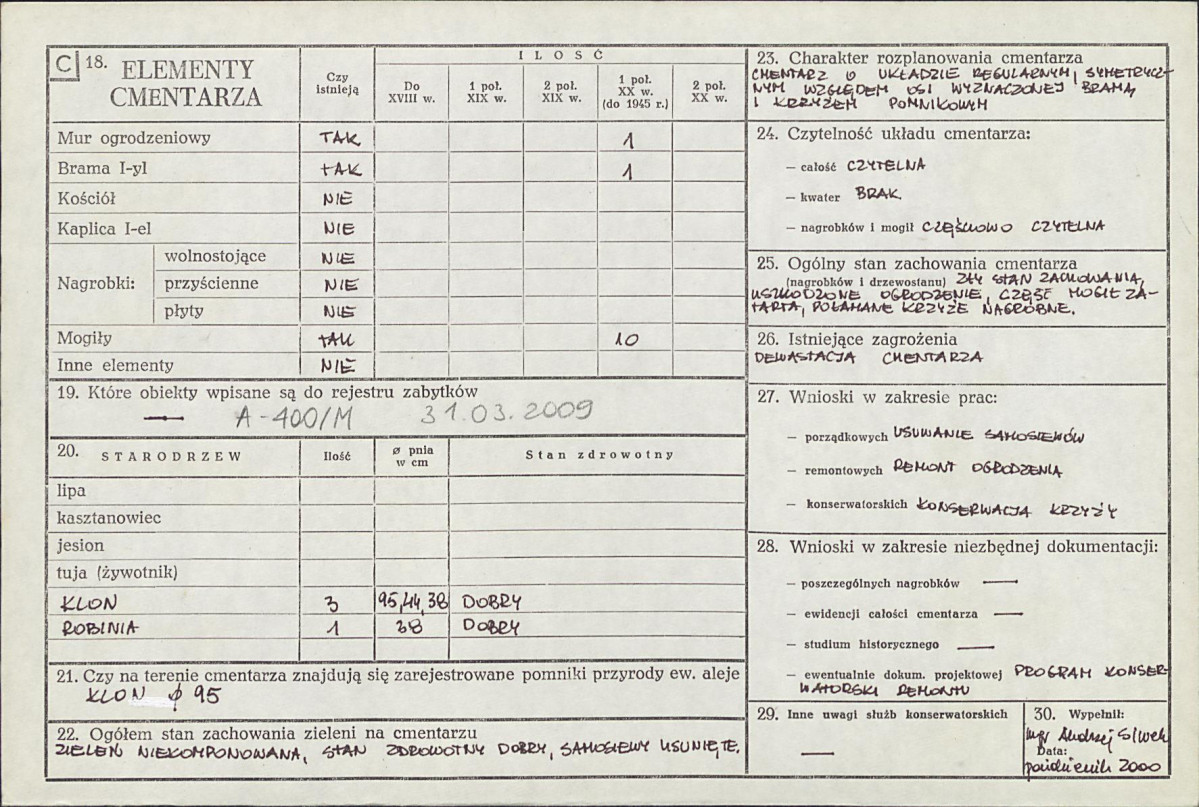 C 18. ELEMENTY CMENTARZA
Czy istnieją
ILOŚĆ
Do XVIII w.
1 poł. XIX w.
2 poł. XIX w.
1 poł. XX w. (do 1945 r.)
2 poł. XX w.
Mur ogrodzeniowy TAK 1
Brama I-yl TAK 1
Kościół NIE
Kaplica I-el NIE
Nagrobki:
wolnostojące NIE
przyścienne NIE
płyty NIE
Mogiły TAK 10
Inne elementy NIE
19. Które obiekty wpisane są do rejestru zabytków
— A-400/M 31.03.2009
20. STARODRZEW Ilość ø pnia w cm Stan zdrowotny
lipa
kasztanowiec
jesion
tuja (żywotnik)
KLON 3 95,44,38 DOBRY
ROBINIA 1 38 DOBRY
21. Czy na terenie cmentarza znajdują się zarejestrowane pomniki przyrody ew. aleje
KLON ø 95
22. Ogółem stan zachowania zieleni na cmentarzu
ZIELEŃ NIEKOMPONOWANA, STAN ZDROWOTNY DOBRY, SAMOSIEWY USUNIĘTE.
23. Charakter rozplanowania cmentarza
CMENTARZ O UKŁADZIE REGULARNYM, SYMETRYCZ-
NYM WZGLĘDEM OSI WYZNACZONEJ BRAMĄ
I KRZYŻEM POMNIKOWYM
24. Czytelność układu cmentarza:
— całość CZYTELNA
— kwater BRAK.
— nagrobków i mogił CZĘŚCIOWO CZYTELNA
25. Ogólny stan zachowania cmentarza
(nagrobków i drzewostanu) ZŁY STAN ZACHOWANIA,
USZKODZONE OGRODZENIE, CZĘŚĆ MOGIŁ ZA-
TARTA, POŁAMANE KRZYŻE NAGROBNE.
26. Istniejące zagrożenia
DEWASTACJA CMENTARZA
27. Wnioski w zakresie prac:
— porządkowych USUWANIE SAMOSIEWÓW
— remontowych REMONT OGRODZENIA
— konserwatorskich KONSERWACJA KRZYŻY
28. Wnioski w zakresie niezbędnej dokumentacji:
— poszczególnych nagrobków —
— ewidencji całości cmentarza —
— studium historycznego —
— ewentualnie dokum. projektowej PROGRAM KONSER-
WATORSKI REMONTU
29. Inne uwagi służb konserwatorskich
—
30. Wypełnił:
mgr Andrzej Siwek
Data:
październik 2000